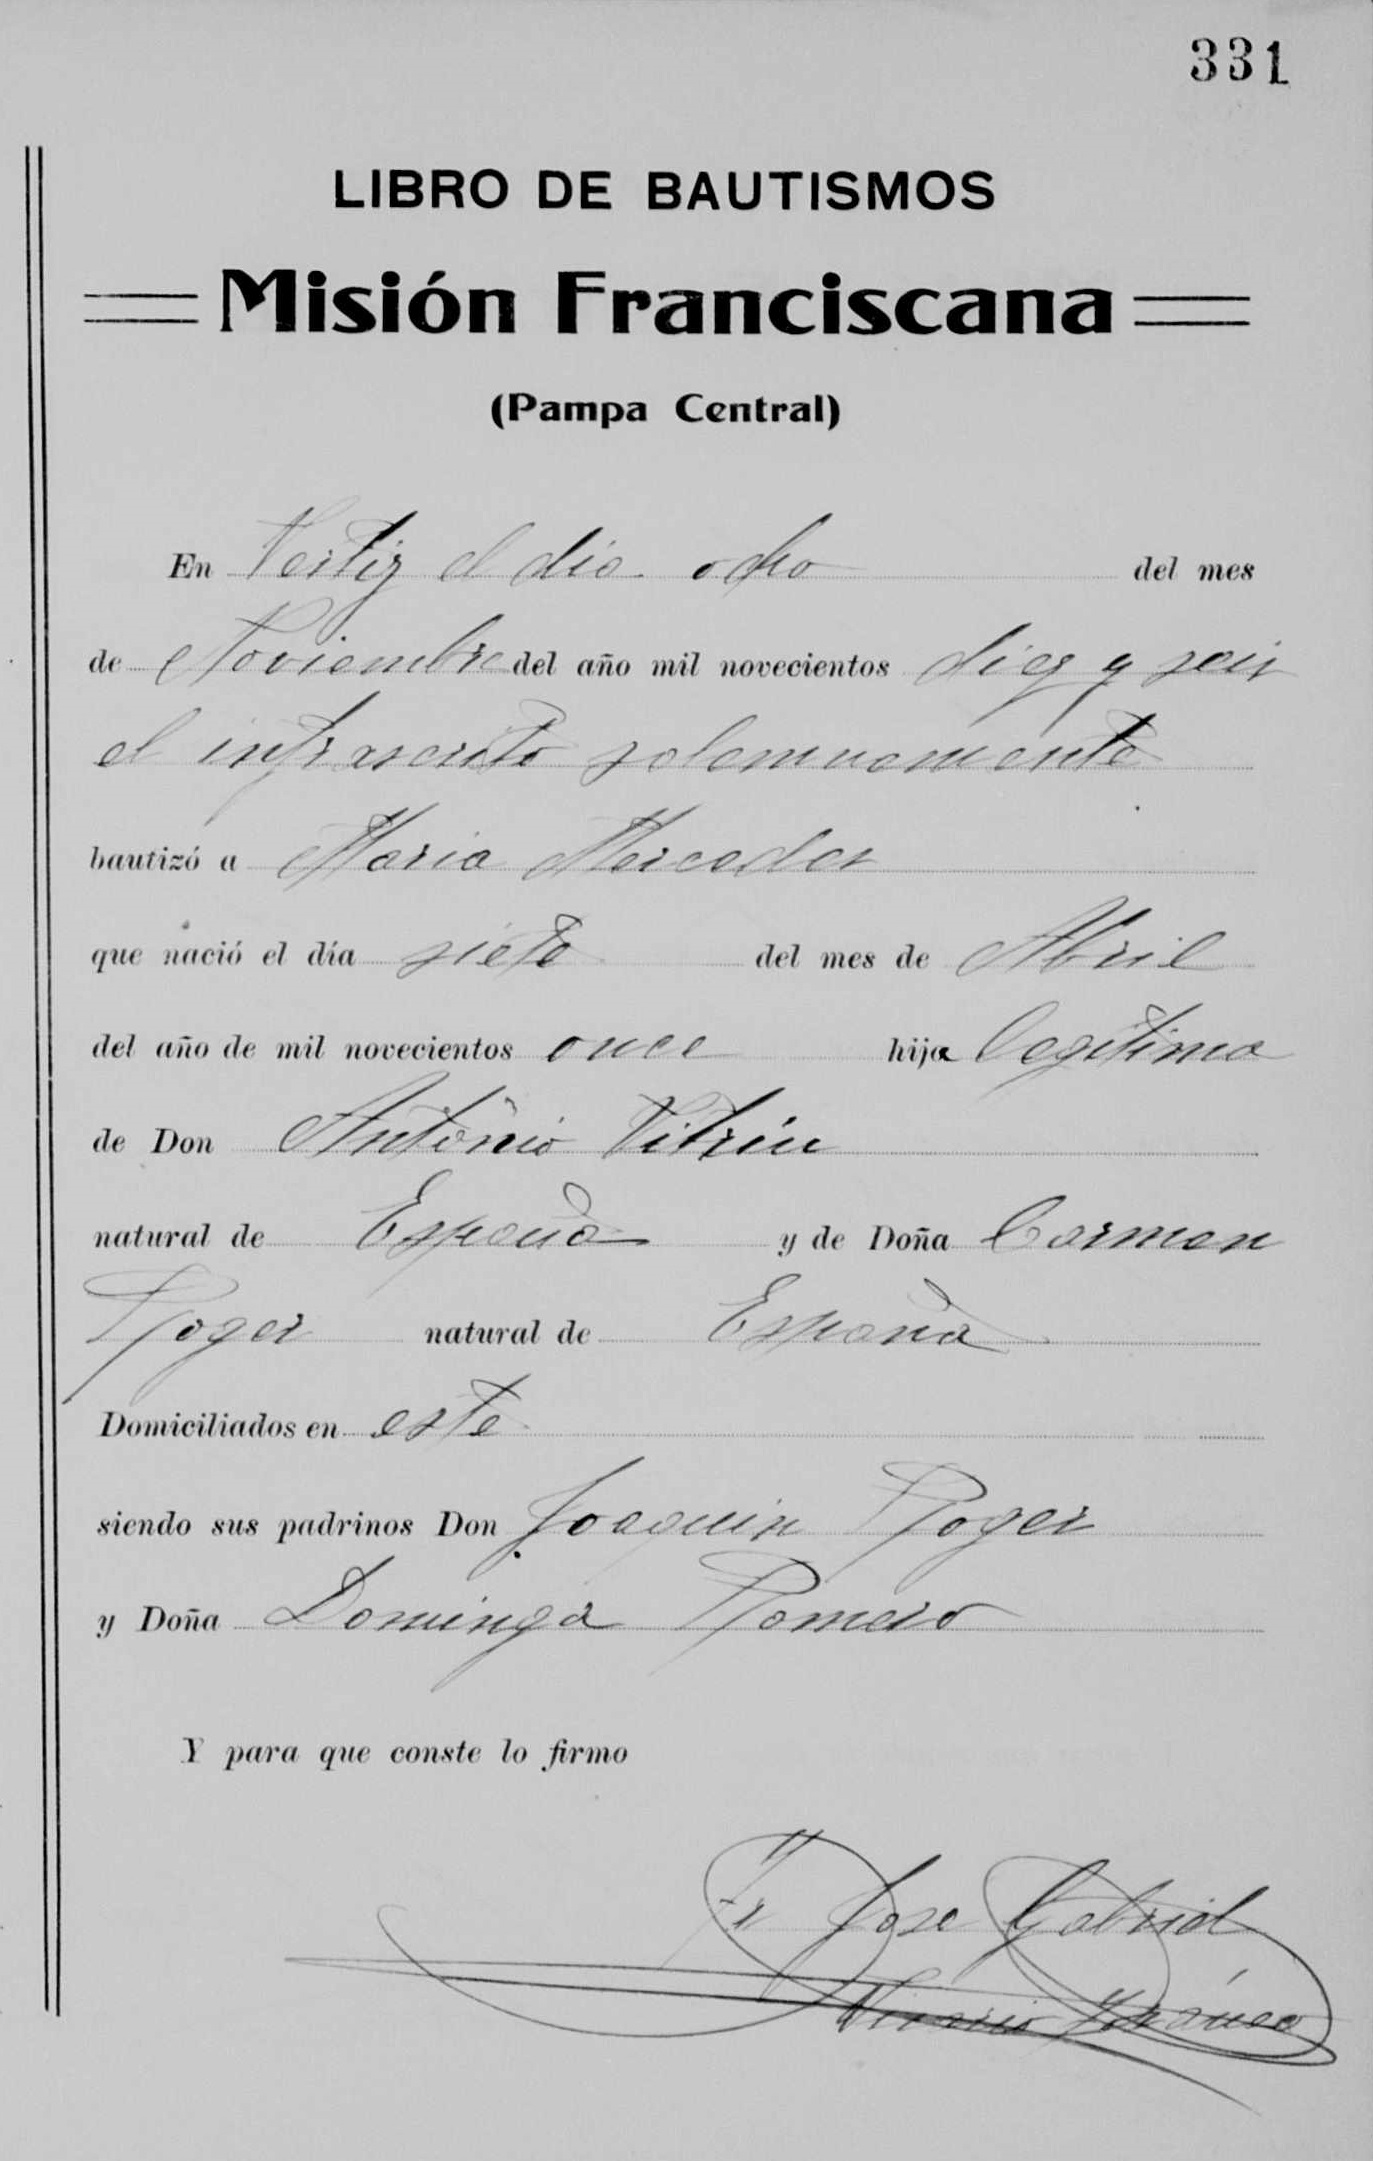 331
LIBRO DE BAUTISMOS
Misión Franciscana
(Pampa Central)
En Vertiz el dia ocho del mes
de Noviembre del año mil novecientos diez y seis
el infrascrito solemnemente
bautizó a Maria Mercedes
que nació el día siete del mes de Abril
del año de mil novecientos once hija legitima
de Don Antonio Vitrin
natural de España y de Doña Carmen
Roger natural de España
Domiciliados en este
siendo sus padrinos Don Joaquin Roger
y Doña Dominga Romero
Y para que conste lo firmo
Fr Jose Gabriel
Vicario